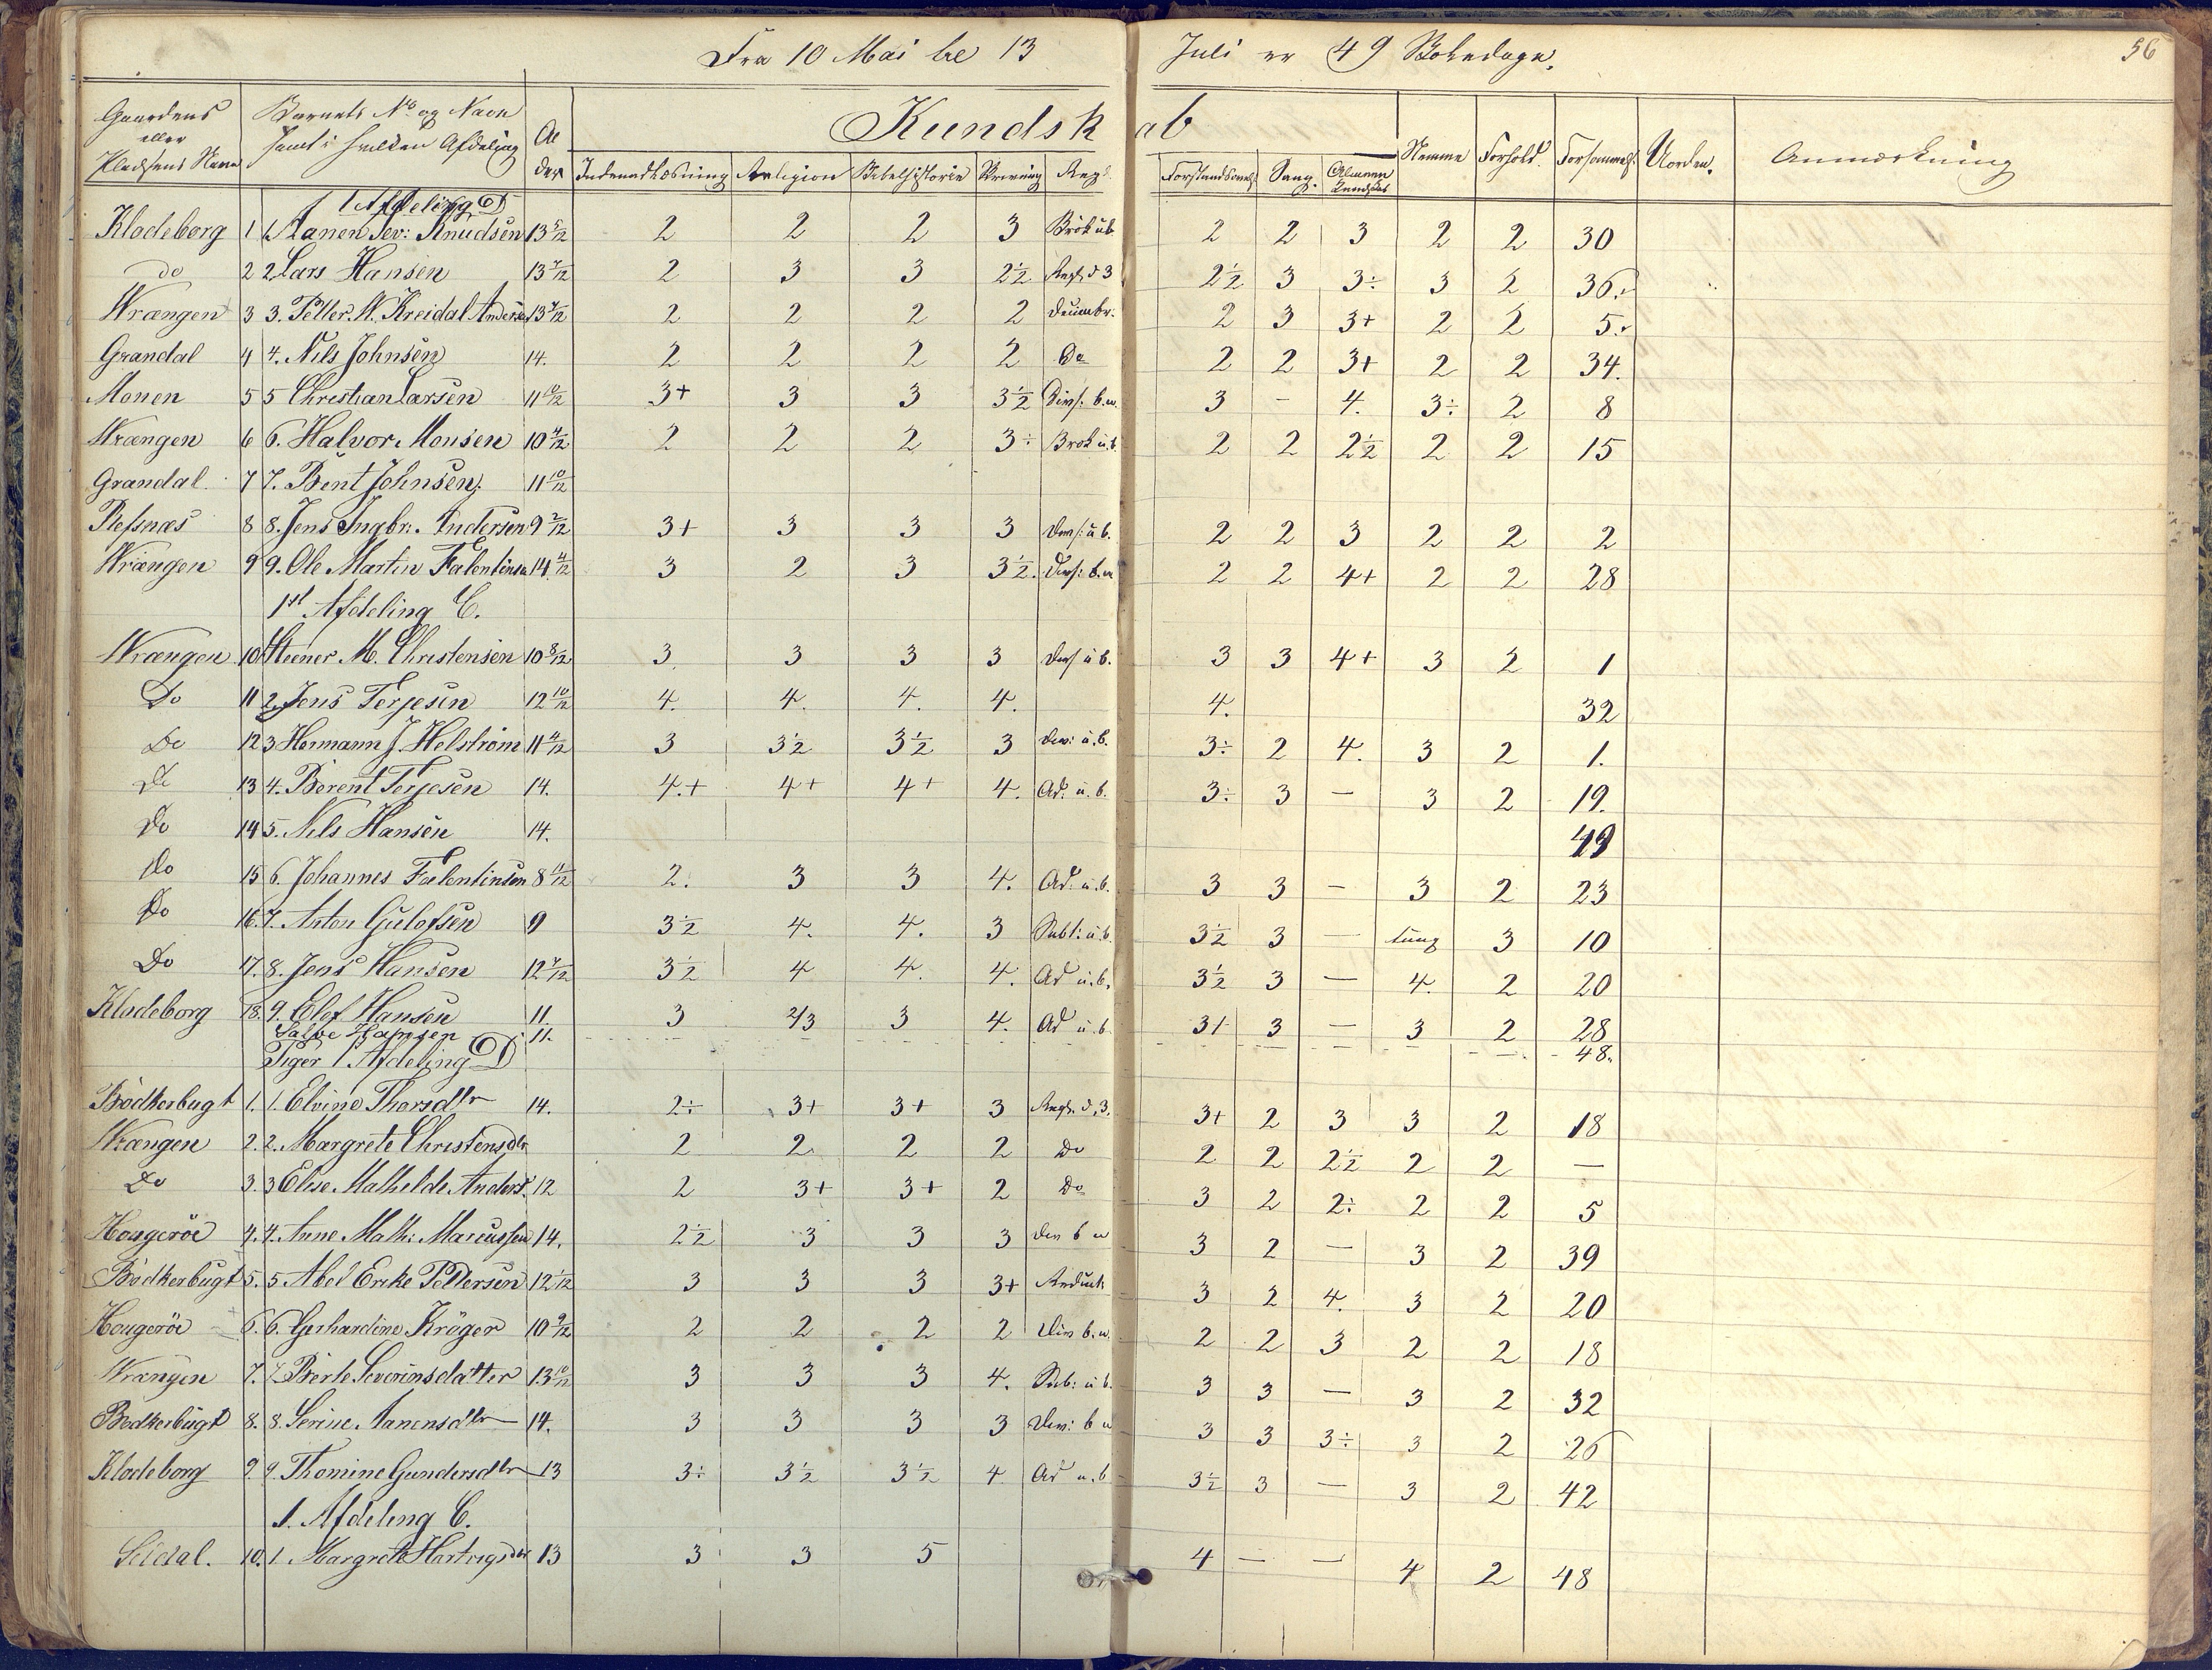 Fra 10 Mai til 13 Juli er 49 Skoledage. 56
Gaardens eller Pladsens Navn | Barnets No og Navn samt i hvilken Afdeling | Alder | Kundskab | Stemme | Forhold | Forsømmels. | Uorden. | Anmærkning
Indenadlæsning | Religion | Bibelhistorie | Skrivning | Regl. | Forstandsøvels. | Sang. | Almeen Kundskab
1 Afdeling D
Klodeborg 1 1. Aanen Sev: Knudsen 13 5/12 2 2 2 3 Brök u.b. 2 2 3 2 2 30
do 2 2 Lars Hansen 13 7/12 2 3 3 2½ Regl. d 3 2½ 3 3÷ 3 2 36.
Wrængen 3 3. Petter N. Kreidal Anders 13 7/12 2 2 2 2 2 3 3+ 2 2 5.
Grandal 4 4. Nils Johnsen 14. 2 2 2 2 Do 2 2 3+ 2 2 34.
Monen 5 5 Christian Larsen 11 10/12 3+ 3 3 3½ Divs: b.n. 3 – 4. 3÷ 2 8
Wrængen 6 6. Halvor Monsen 10 4/12 2 2 2 3÷ Brök u.b. 2 2 2½ 2 2 15
Grandal. 7 7. Bent Johnsen. 11 10/12
Refsnæs 8 8. Jens Ingbr: Andersen 9 2/12 3+ 3 3 3 Divs: u b. 2 2 3 2 2 2
Wrængen 9 9. Ole Martin Falentinsn 14 4/12 3 2 3 3½. Divs: b.n 2 2 4+ 2 2 28
1st Afdeling C.
Wrængen 10 1 Steener M. Christensen 10 8/12 3 3 3 3 Divs u b. 3 3 4+ 3 2 1
Do 11 2. Jens Terjesen 12 10/12 4. 4. 4. 4. 4. 32
Do 12 3 Hermann J. Helström 11 4/12 3 3½ 3½ 3 Div: u.b. 3÷ 2 4. 3 2 1.
Do 13 4. Berent Terjesen 14. 4.+ 4+ 4+ 4. Ad. u. b. 3÷ 3 — 3 2 19.
Do 14 5. Nils Hansen 14. 49
Do 15 6. Johannes Falentinsen 8 11/12 2. 3 3 4. Ad: u.b. 3 3 – 3 2 23
Do 16. 7. Anton Gulofsen 9 3½ 4. 4. 3 Subt: u.b. 3½ 3 — tung 3 10
Do 17. 8. Jens Hansen 12 7/12 3½ 4 4. 4. Ad u.b. 3½ 3 — 4. 2 20
Klodeborg 18. 9. Elef Hansen 11 3 2/3 3 4. Ad u.b 3+ 3 — 3 2 28
Salve Hansen 11. 48.
Piger 1 Afdeling D
Bödkerbugt 1. 1. Elvine Thorsdtr 14. 2÷ 3+ 3+ 3 Regl. d. 3. 3+ 2 3 3 2 18
Wrængen 2. 2. Margrete Christensdtr 2 2 2 2 Do 2 2 2½ 2 2 —
Do 3. 3 Elise Mathilde Anders. 12 2 3+ 3+ 2 Do 3 2 2÷ 2 2 5
Hougeröe 4. 4. Anne Math: Marcussen 14. 2½ 3 3 3 Div b n 3 2 — 3 2 39
Bödkerbugt 5. 5 Abel Erike Pettersen 12 1/12 3 3 3 3+ Reduct: 3 2 4. 3 2 20
Hougeröe 6. 6. Gerhardine Kröger 10 9/12 2 2 2 2 Div b.n. 2 2 3 2 2 18
Wrængen 7. 7 Berte Severinsdatter 13 10/12 3 3 3 4. Sub: u b. 3 3 — 3 2 32
Bödkerbugt 8. 8. Serine Aanensdtr 14. 3 3 3 3 Div: b n 3 3 3÷ 3 2 26
Klodeborg 9. 9. Thomine Gundersdtr 13 3÷ 3½ 3½ 4. Ad u.b 3½ 3 — 3 2 42
1. Afdeling C.
10. 1. Margrete Hartvigsdtr 13 3 3 5 4 — — 4 2 48